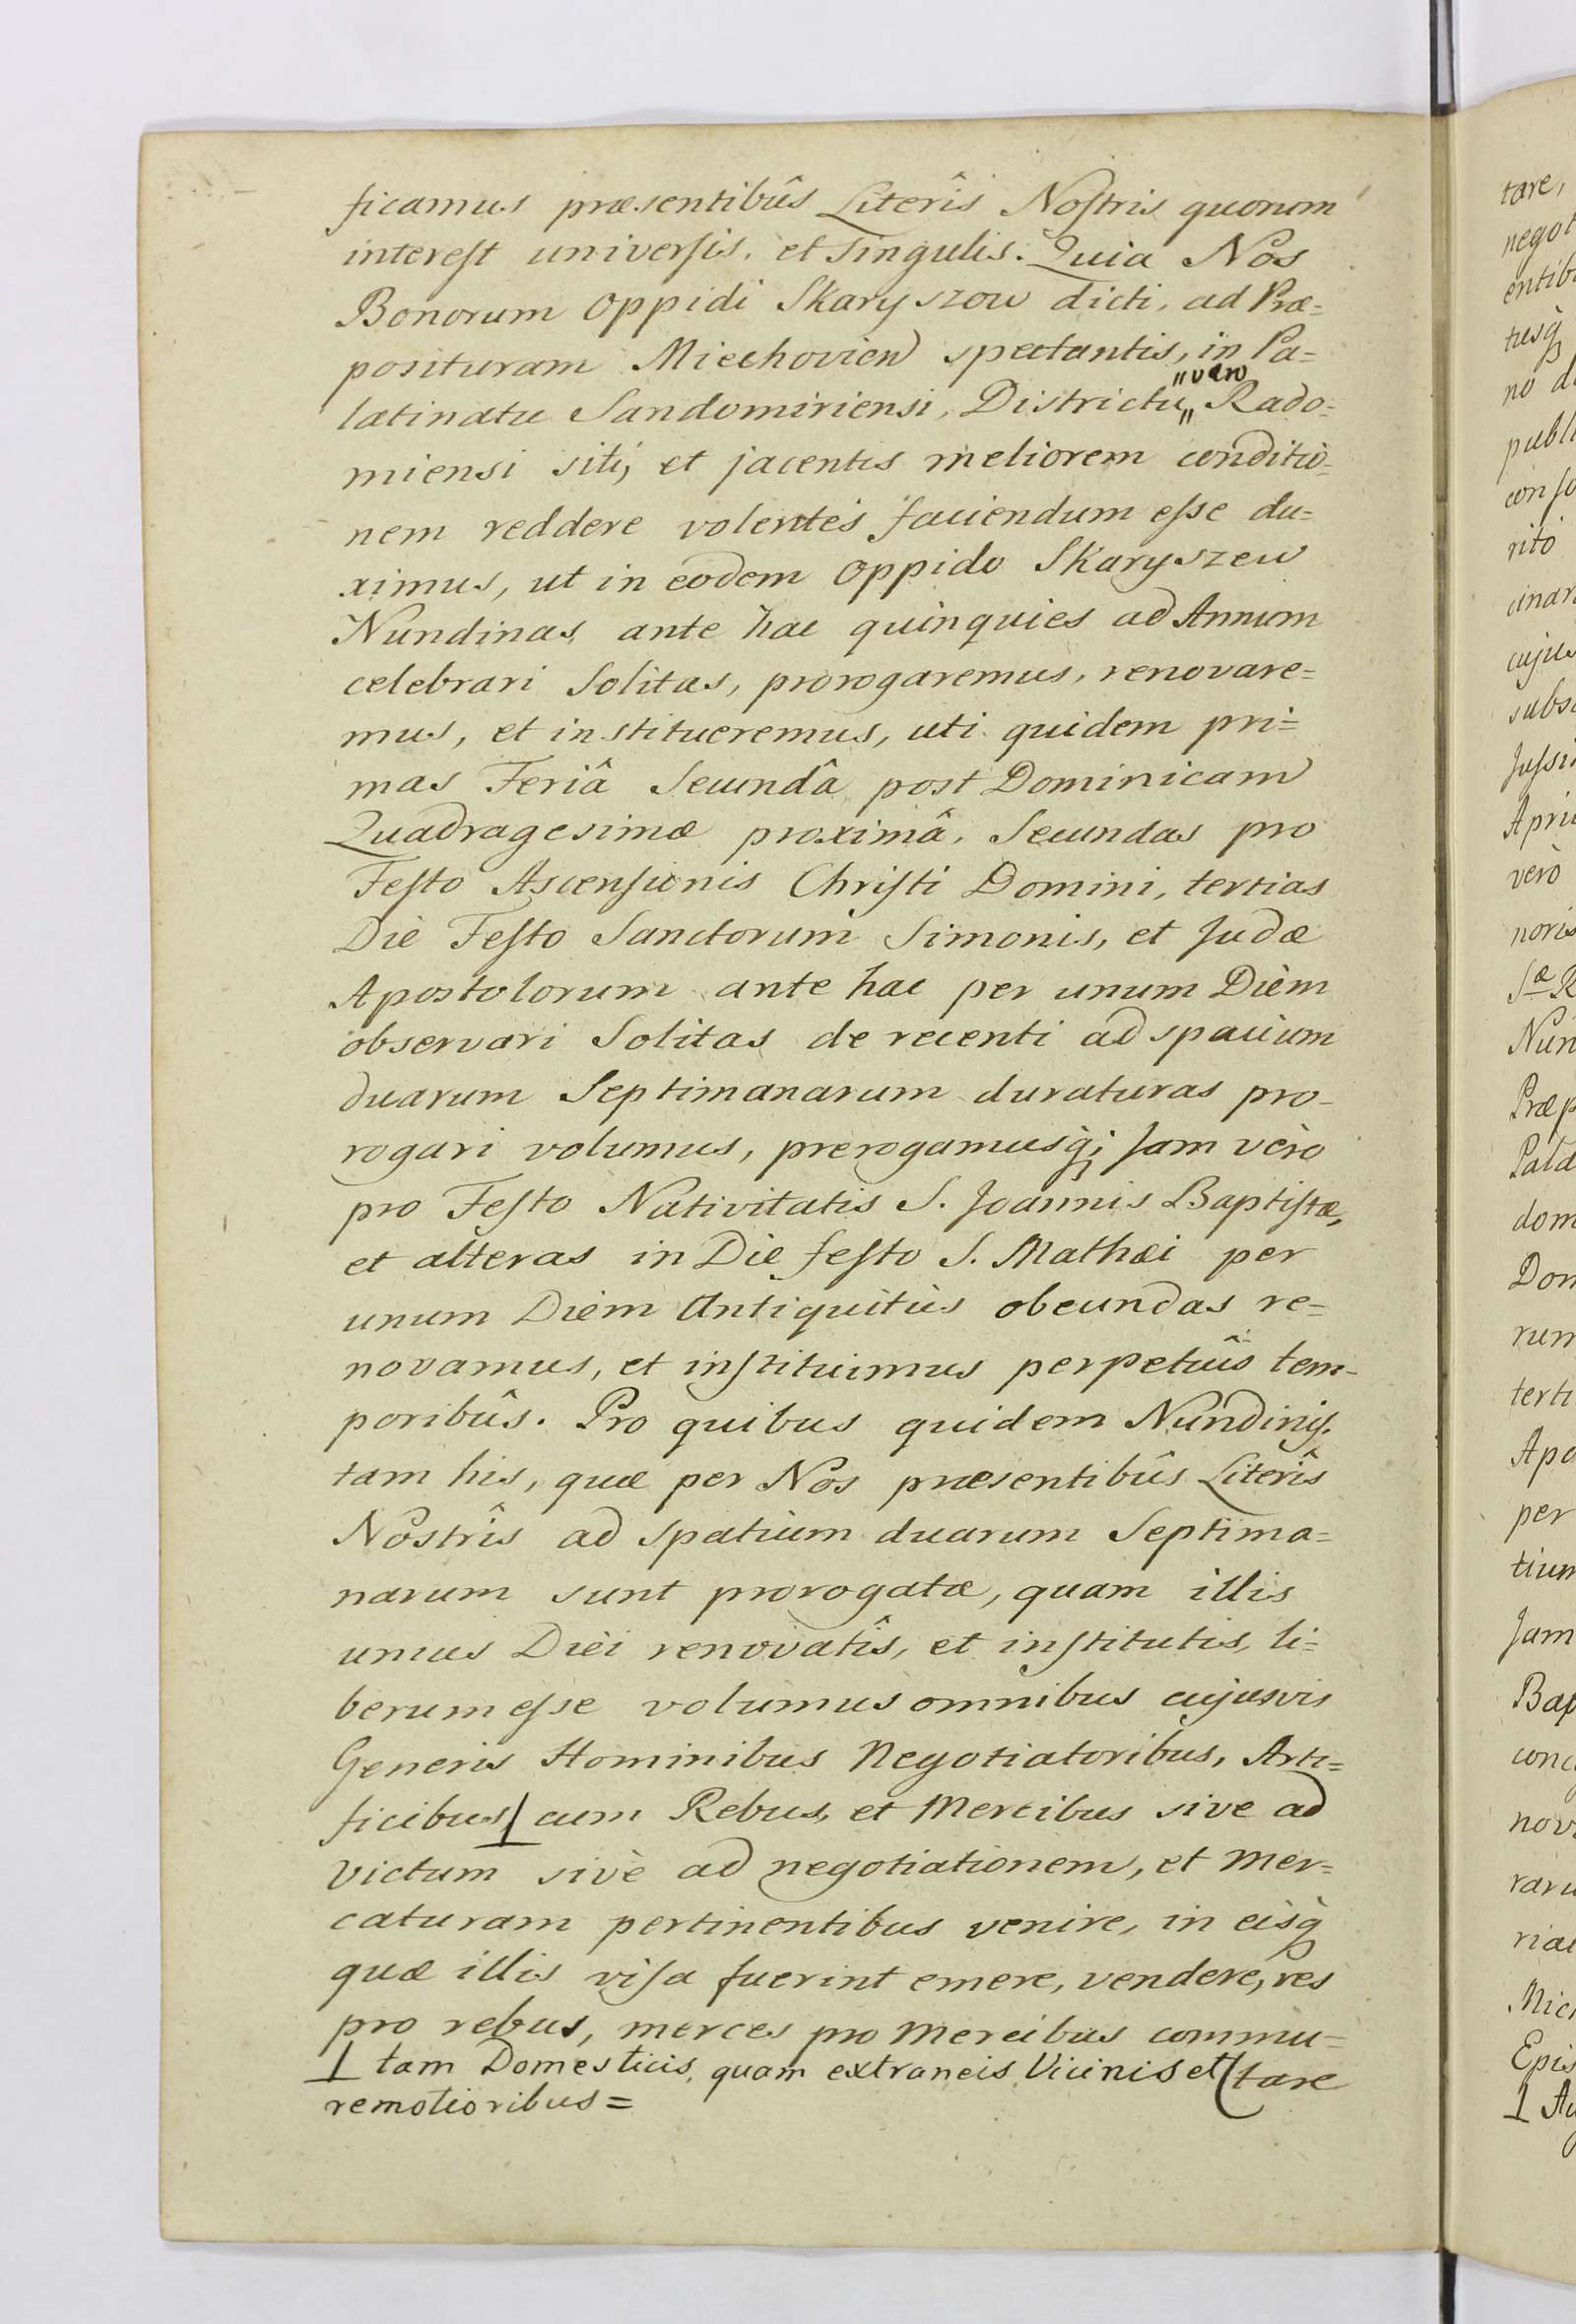 ficamus præsentibûs Literîs Nostris quorum
interest universis, et singulis. Quia Nos
Bonorum Oppidi Skaryszow dicti, ad Præ=
posituram Miechovien spectantis, in Pa=
"vero
latinatu Sandomiriensi, Districtu" Rado=
miensi siti, et jacentis meliorem conditio=
nem reddere volentes faciendum esse du=
ximus, ut in eodem Oppido Skaryszew
Nundinas ante hac quinquies ad Annum
celebrari Solitas, prorogaremus, renovare=
mus, et institueremus, uti quidem pri=
mas Feriâ Secundâ post Dominicam
Quadragesimæ proximâ, Secundas pro
Festo Ascensionis Christi Domini, tertias
Die Festo Sanctorum Simonis, et Judæ
Apostolorum ante hac per unum Dièm
observari Solitas de recenti ad spacium
duarum Septimanarum duraturas pro-
rogari volumus, prerogamusq; Jam vèro
pro Festo Nativitatis S. Joannis Baptistæ,
et alteras in Die festo S. Mathæi per
unum Dièm Antiquitùs obeundas re=
novamus, et instituimus perpetuîs tem-
poribûs. Pro quibus quidem Nundinis,
tam his, quæ per Nos præsentibûs Literîs
Nostrîs ad spatium duarum Septima=
narum sunt prorogatæ, quam illis
unius Dièi renovatîs, et institutis, li=
berum esse volumus omnibus cujusvis
Generis Hominibus Negotiatoribus, Arti=
ficibus ⊥ cum Rebus, et Mercibus sive ad
Victum sivè ad negotiationem, et Mer=
caturam pertinentibus venire, in eisq
quæ illis visa fuerint emere, vendere, res
pro rebus, merces pro Mercibus commu=
⊥ tam Domesticis, quam extraneis Vicinis et (tare
remotioribus =
tare,
negot
entib
tusq
no d
publ
rito
cinar
cujus
subs
Jussi
Apri
verò
noris
Sæ R
Nun
Præp
Pala
dom
Dom
rum
terti
Apo
per
tium
Jam
Bap
conc
nov
raru
ria
Mie
Epis
⊥ Au